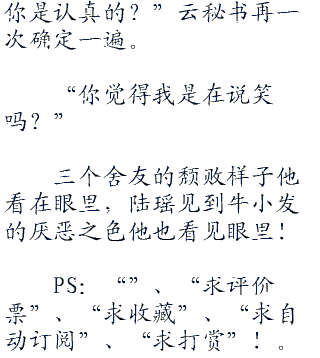 你是认真的？”云秘书再一
次确定一遍。
“你觉得我是在说笑
吗？”
三个舍友的颓败样子他
看在眼里，陆瑶见到牛小发
的厌恶之色他也看见眼里！
PS：“”、“求评价
票”、“求收藏”、“求自
动订阅”、“求打赏”！。